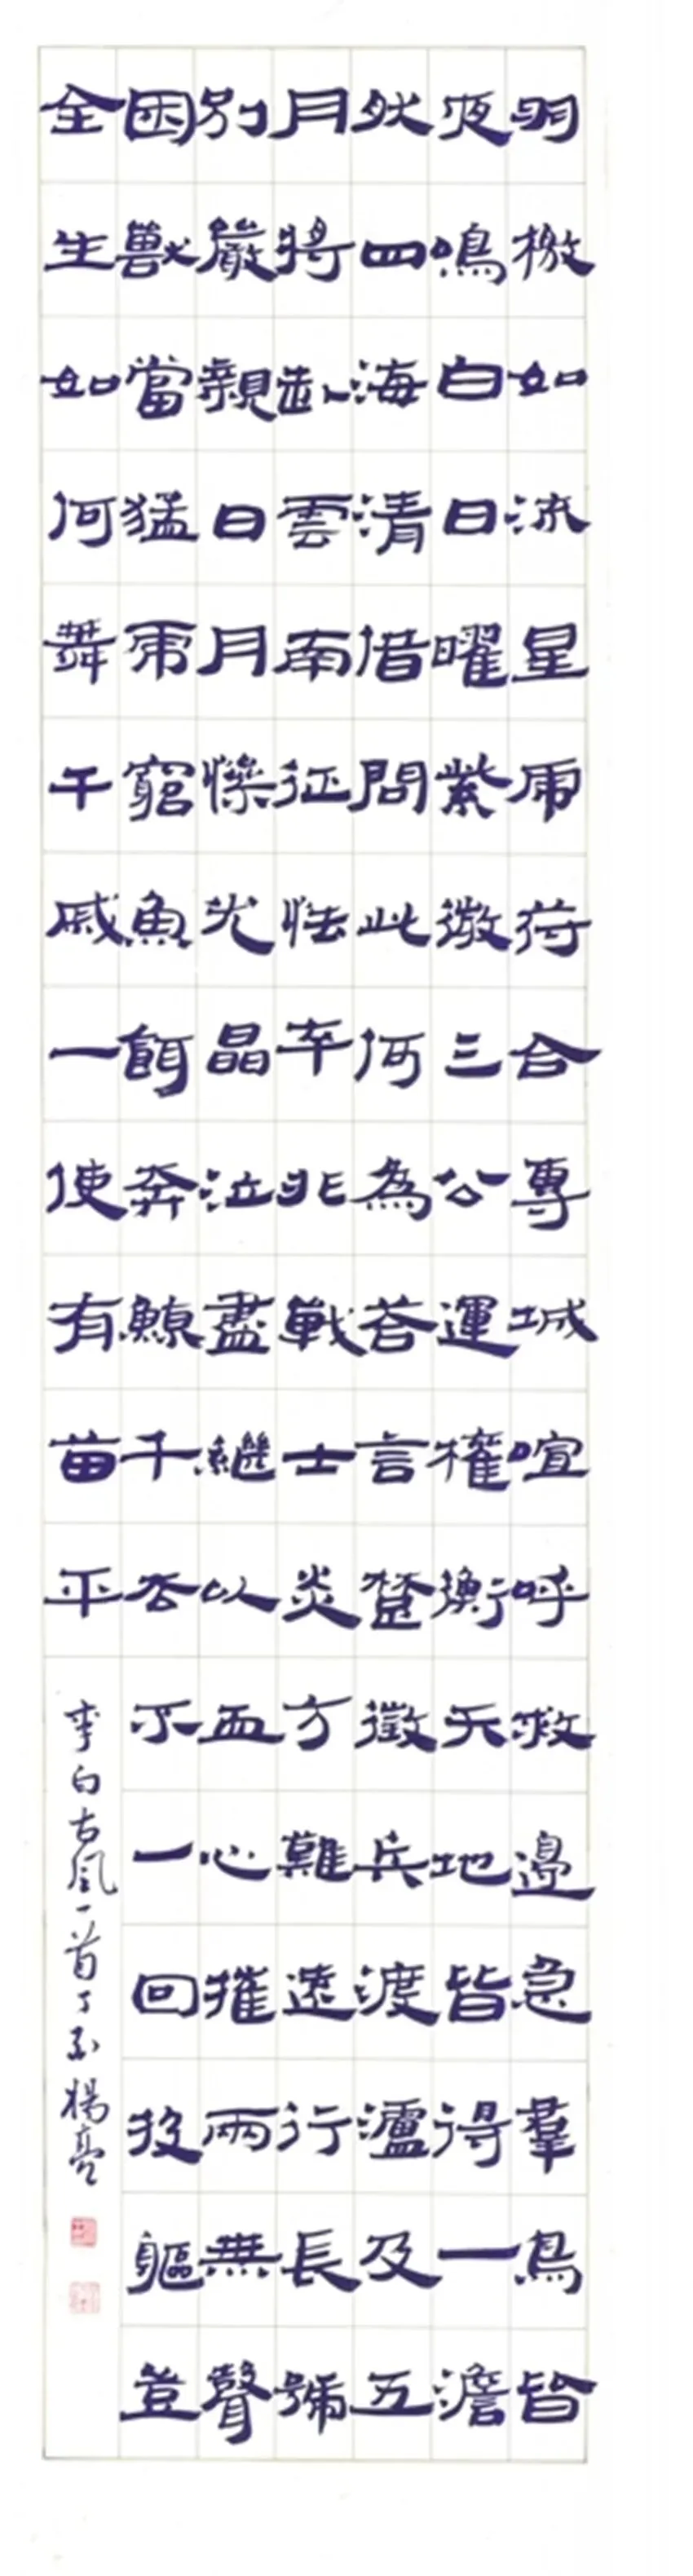 羽檄如流星虎符合專城喧呼救邊急羣鳥皆
夜鳴白日曜紫微三公運權衡天地皆得一澹
然四海清借問此何為荅言楚徵兵渡瀘及五
月將赴雲南征怯卒非戰士炎方難遠行長號
別嚴親日月慘光晶泣盡繼以血心摧兩無聲
困獸當猛虎窮魚餌奔鯨千去不一回投軀豈
全生如何舞干戚一使有苗平
李白古風一首丁酉楊亮